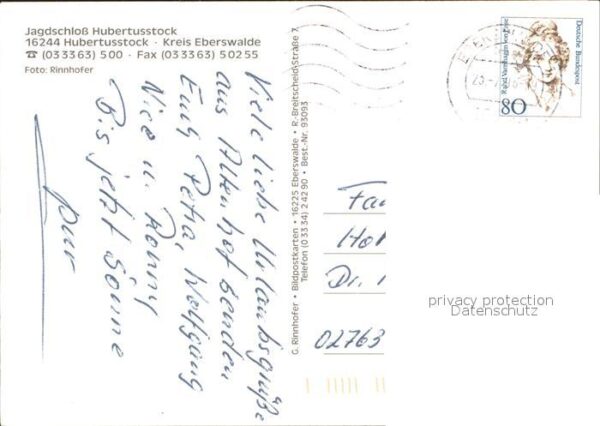 Jagdschloß Hubertusstock
16244 Hubertusstock · Kreis Eberswalde
☎ (03 33 63) 5 00 · Fax (03 33 63) 5 02 55
Foto: Rinnhofer
Viele liebe Urlaubsgrüße
aus Altenhof senden
Euch Petra, Wolfgang
Nico u. Ronny
Bis jetzt Sonne
pur
G. Rinnhofer • Bildpostkarten • 16225 Eberswalde • R.-Breitscheid-Straße 7
Telefon (0 33 34) 2 42 90 • Best.-Nr. 93093
Deutsche Bundespost
80
Fa
Ho
Dr.
02763
privacy protection
Datenschutz